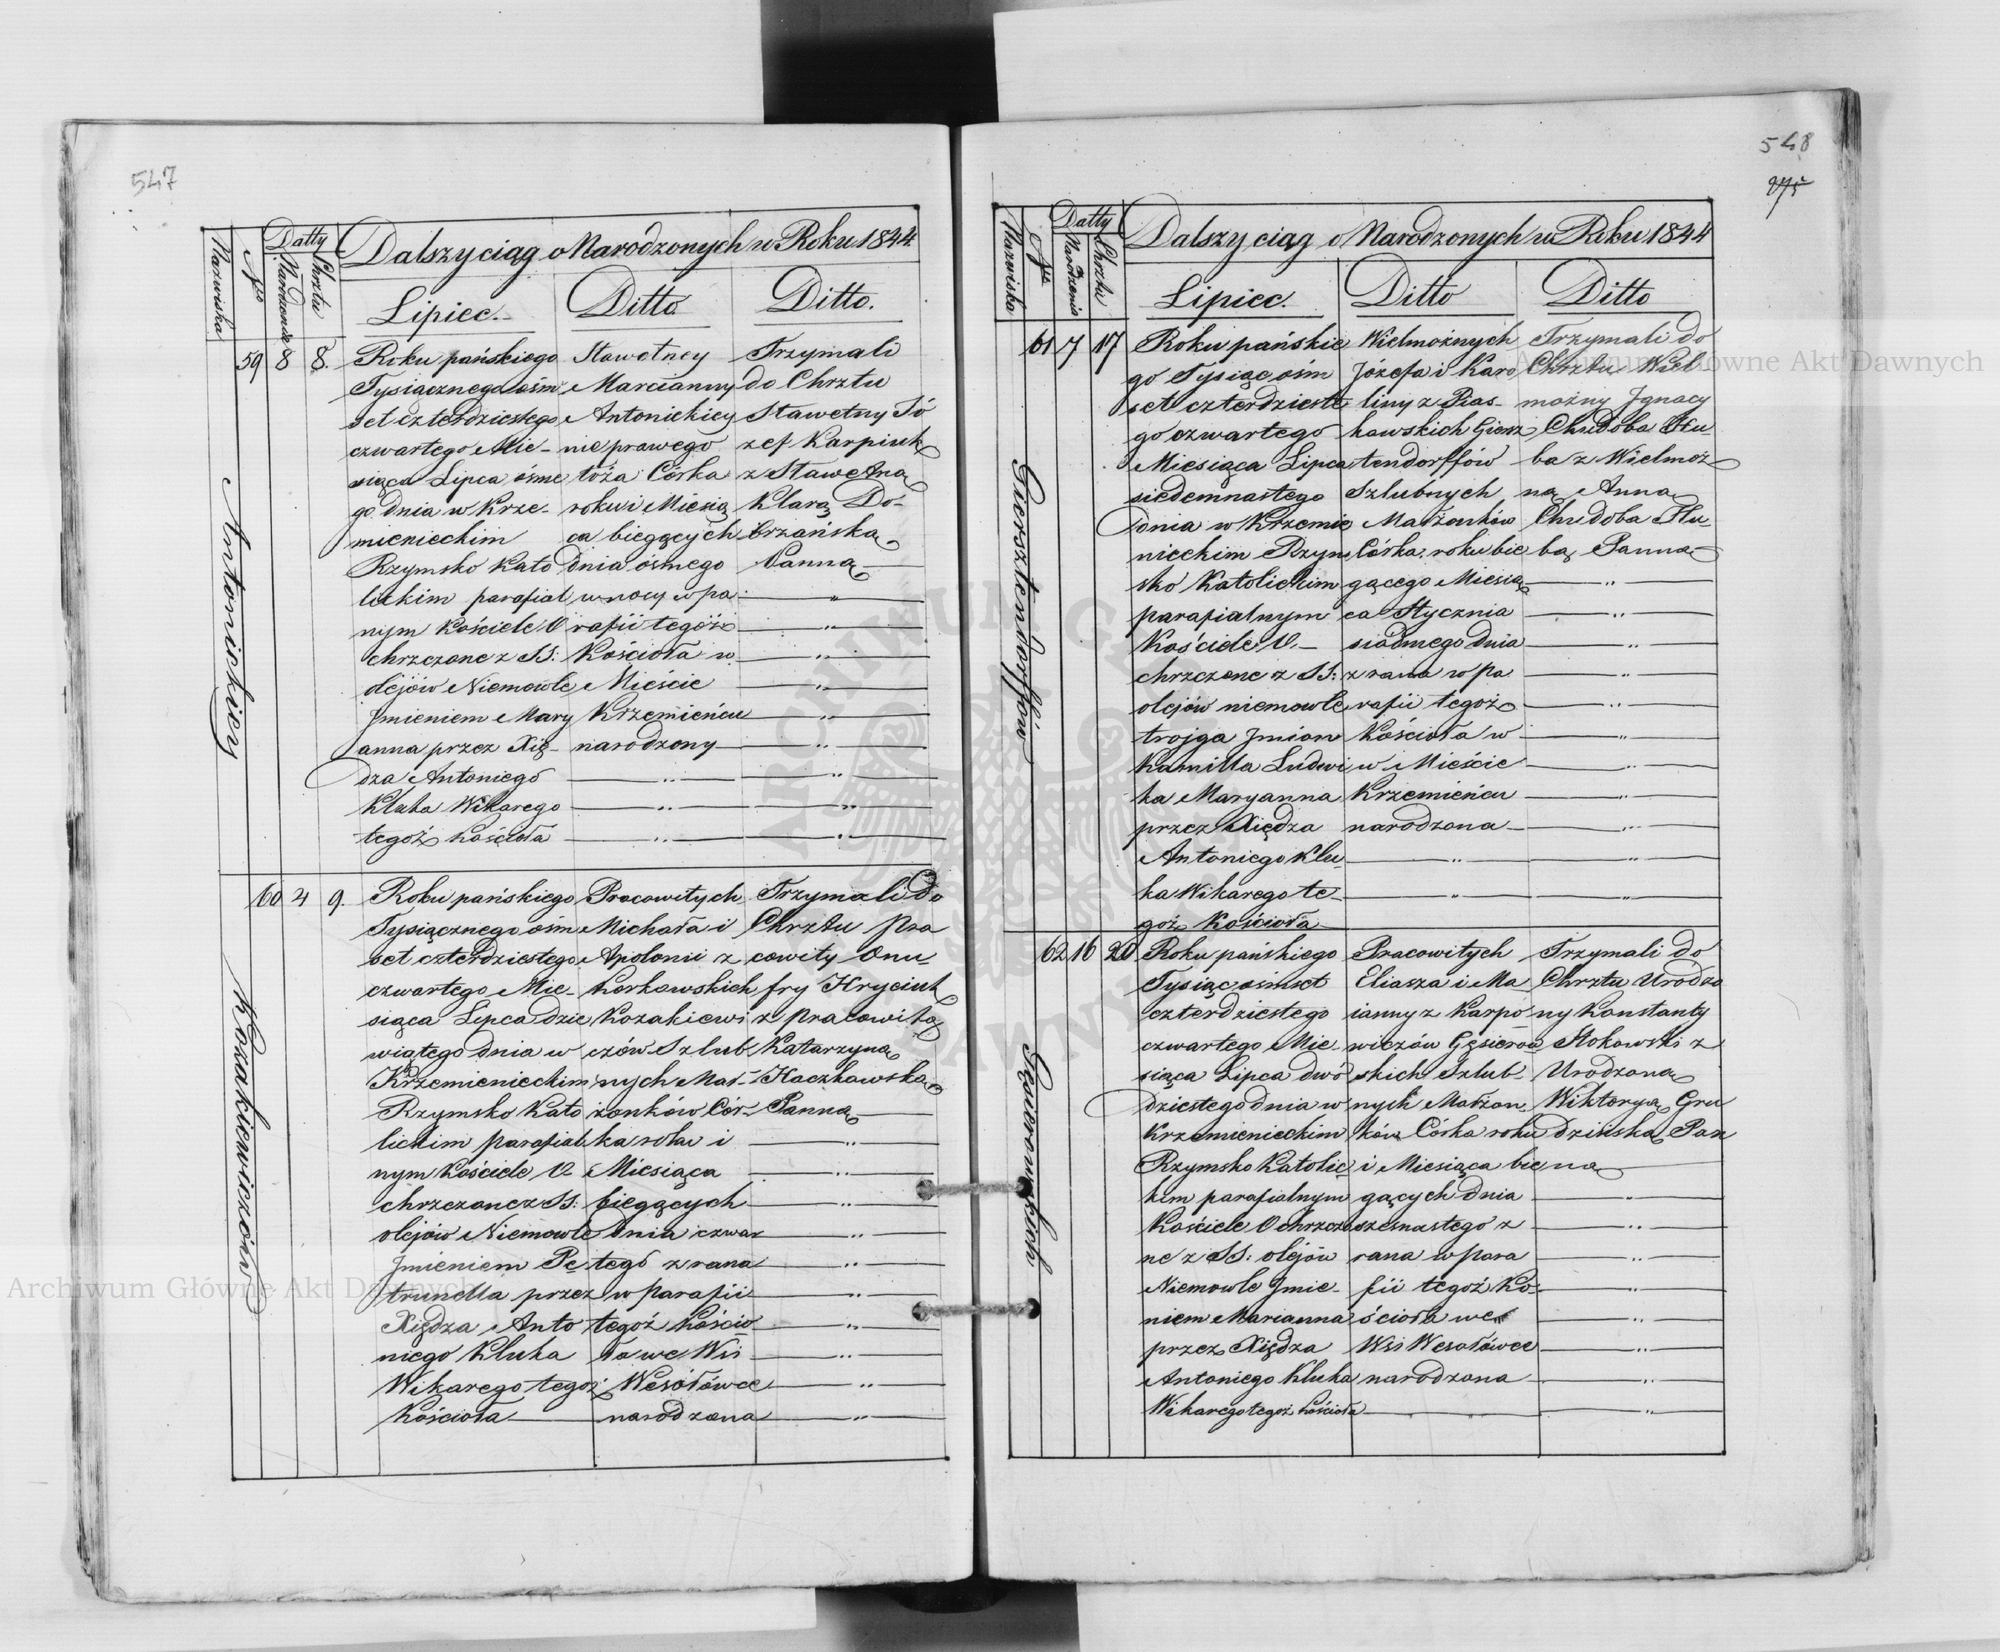 547
Nazwiska
Nro
Datty
Narodzenia
Chrztu
Dalszy ciąg o Narodzonych w Roku 1844
Lipiec.
Ditto
Ditto.
Antonickiey
59
8
8.
Roku pańskiego
Tysiącznego ośm
set czterdziestego
czwartego Mie-
siąca Lipca ósme
go dnia w Krze-
mienieckim
Rzymsko Kato
lickim parafial
nym Kościele O
chrzczone z SS:
olejów Niemowle
Jmieniem Mary
anna przez Xię-
dza Antoniego
Kluka Wikarego
tegoż Kościoła
Sławetney
Marcianny
Antonickiey
nieprawego
łoża Córka
roku i Miesią
ca biegących
dnia ósmego
w nocy w pa
rafii tegoż
Kościoła w
Mieście
Krzemieńcu
narodzony
Trzymali
do Chrztu
Sławetny Jó
zef Karpiuk
z Sławetną
Klarą Do-
brzańską
Panną
Kozakiewiczów
60
4
9.
Roku pańskiego
Tysiącznego ośm
set czterdziestego
czwartego Mie-
siąca Lipca dzie
wiątego dnia w
Krzemienieckim
Rzymsko Kato
lickim parafial
nym Kościele O
chrzczone z SS:
olejów Niemowle
Jmieniem Pe
trunella przez
Xiędza Anto
niego Kluka
Wikarego tegoż
Kościoła
Pracowitych
Michała i
Apolonii z
Korkowskich
Kozakiewi
czów Szlub
nych Mał-
żonków Cór-
ka roku i
Miesiąca
biegących
dnia czwar
tego z rana
w parafii
tegoż Kościo
ła we Wsi
Wesołówce
narodzona
Trzymali do
Chrztu pra
cowity Onu
fry Hryciuk
z pracowitą
Katarzyną
Kaczkowską
Panną
548
275
Nazwiska
Nro
Datty
Narodzenia
Chrztu
Dalszy ciąg o Narodzonych w Roku 1844
Lipiec.
Ditto
Ditto
Giersztendorffów
61
7
17
Roku pańskie
go Tysiąc ośm
set czterdzieste
go czwartego
Miesiąca Lipca
siedemnastego
dnia w Krzemie
nieckim Rzym
sko Katolickim
parafialnym
Kościele O.-
chrzczone z SS:
olejów niemowle
trojga Jmion
Kamilla Ludwi
ka Maryanna
przez Xiędza
Antoniego Klu
ka Wikarego te-
goż Kościoła
Wielmożnych
Józefa i Karo
liny z Pias-
kowskich Giersz
tendorffów
Szlubnych
Małżonków
Córka, roku bie
gącego Miesią
ca Stycznia
siódmego dnia
z rana w pa
rafii tegoż
Kościoła w
w Mieście
Krzemieńcu
narodzona
Trzymali do
Chrztu Wiel
możny Jgnacy
Chudoba Hłu-
ba z Wielmoż-
ną Anną
Chudoba Hłu-
bą Panną
Gąsiorowskich
62
16
20
Roku pańskiego
Tysiąc ośmset
czterdziestego
czwartego Mie-
siąca Lipca dwó
dziestego dnia w
Krzemienieckim
Rzymsko Katolic
kim parafialnym
Kościele O chrzczo
ne z SS: olejów
Niemowle Jmie-
niem Marianna
przez Xiędza
Antoniego Kluka
Wikarego tegoż Kościoła
Pracowitych
Eliasza i Ma
ianny z Karpo
wiczów Gąsiorow
skich Szlub-
nych Małżon
ków Córka roku
i Miesiąca bie
gących dnia
szesnastego z
rana w para
fii tegoż Ko-
ścioła we
Wsi Wesołówce
narodzona
Trzymali do
Chrztu Urodzo
ny Konstanty
Stokowski z
Urodzoną
Wiktoryą Gru
dzińską Pan
ną
Archiwum Główne Akt Dawnych
Archiwum Główne Akt Dawnych